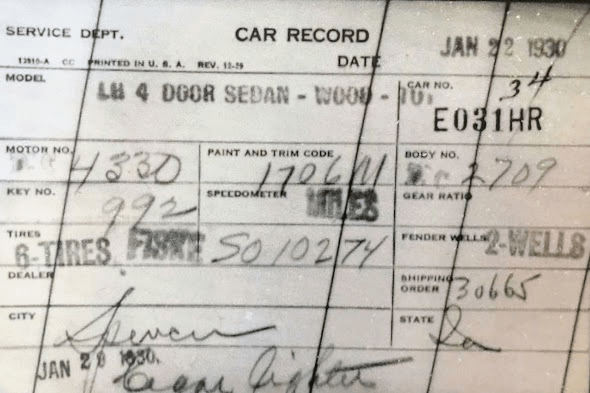 SERVICE DEPT. CAR RECORD
JAN 22 1930
12510-A CC PRINTED IN U. S. A. REV. 12-29 DATE
MODEL LH 4 DOOR SEDAN - WOOD - CAR NO. 34
E031HR
MOTOR NO. 4330 PAINT AND TRIM CODE 1706M BODY NO. 2709
KEY NO. 992 SPEEDOMETER MILES GEAR RATIO
TIRES 6-TIRES FISKE SO 10274 FENDER WELLS 2-WELLS
DEALER SHIPPING ORDER 30665
CITY Spencer STATE Ia
JAN 20 1930. Cigar lighter